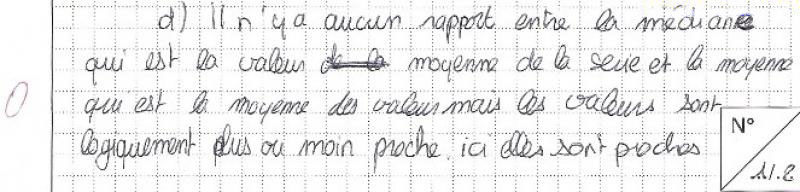 d) Il n'y a aucun rapport entre la médiane
qui est la valeur moyenne de la serie et la moyenne
0 qui est la moyenne des valeurs mais les valeurs sont
logiquement plus ou moin proche. ici elles sont proches
N°
11.2